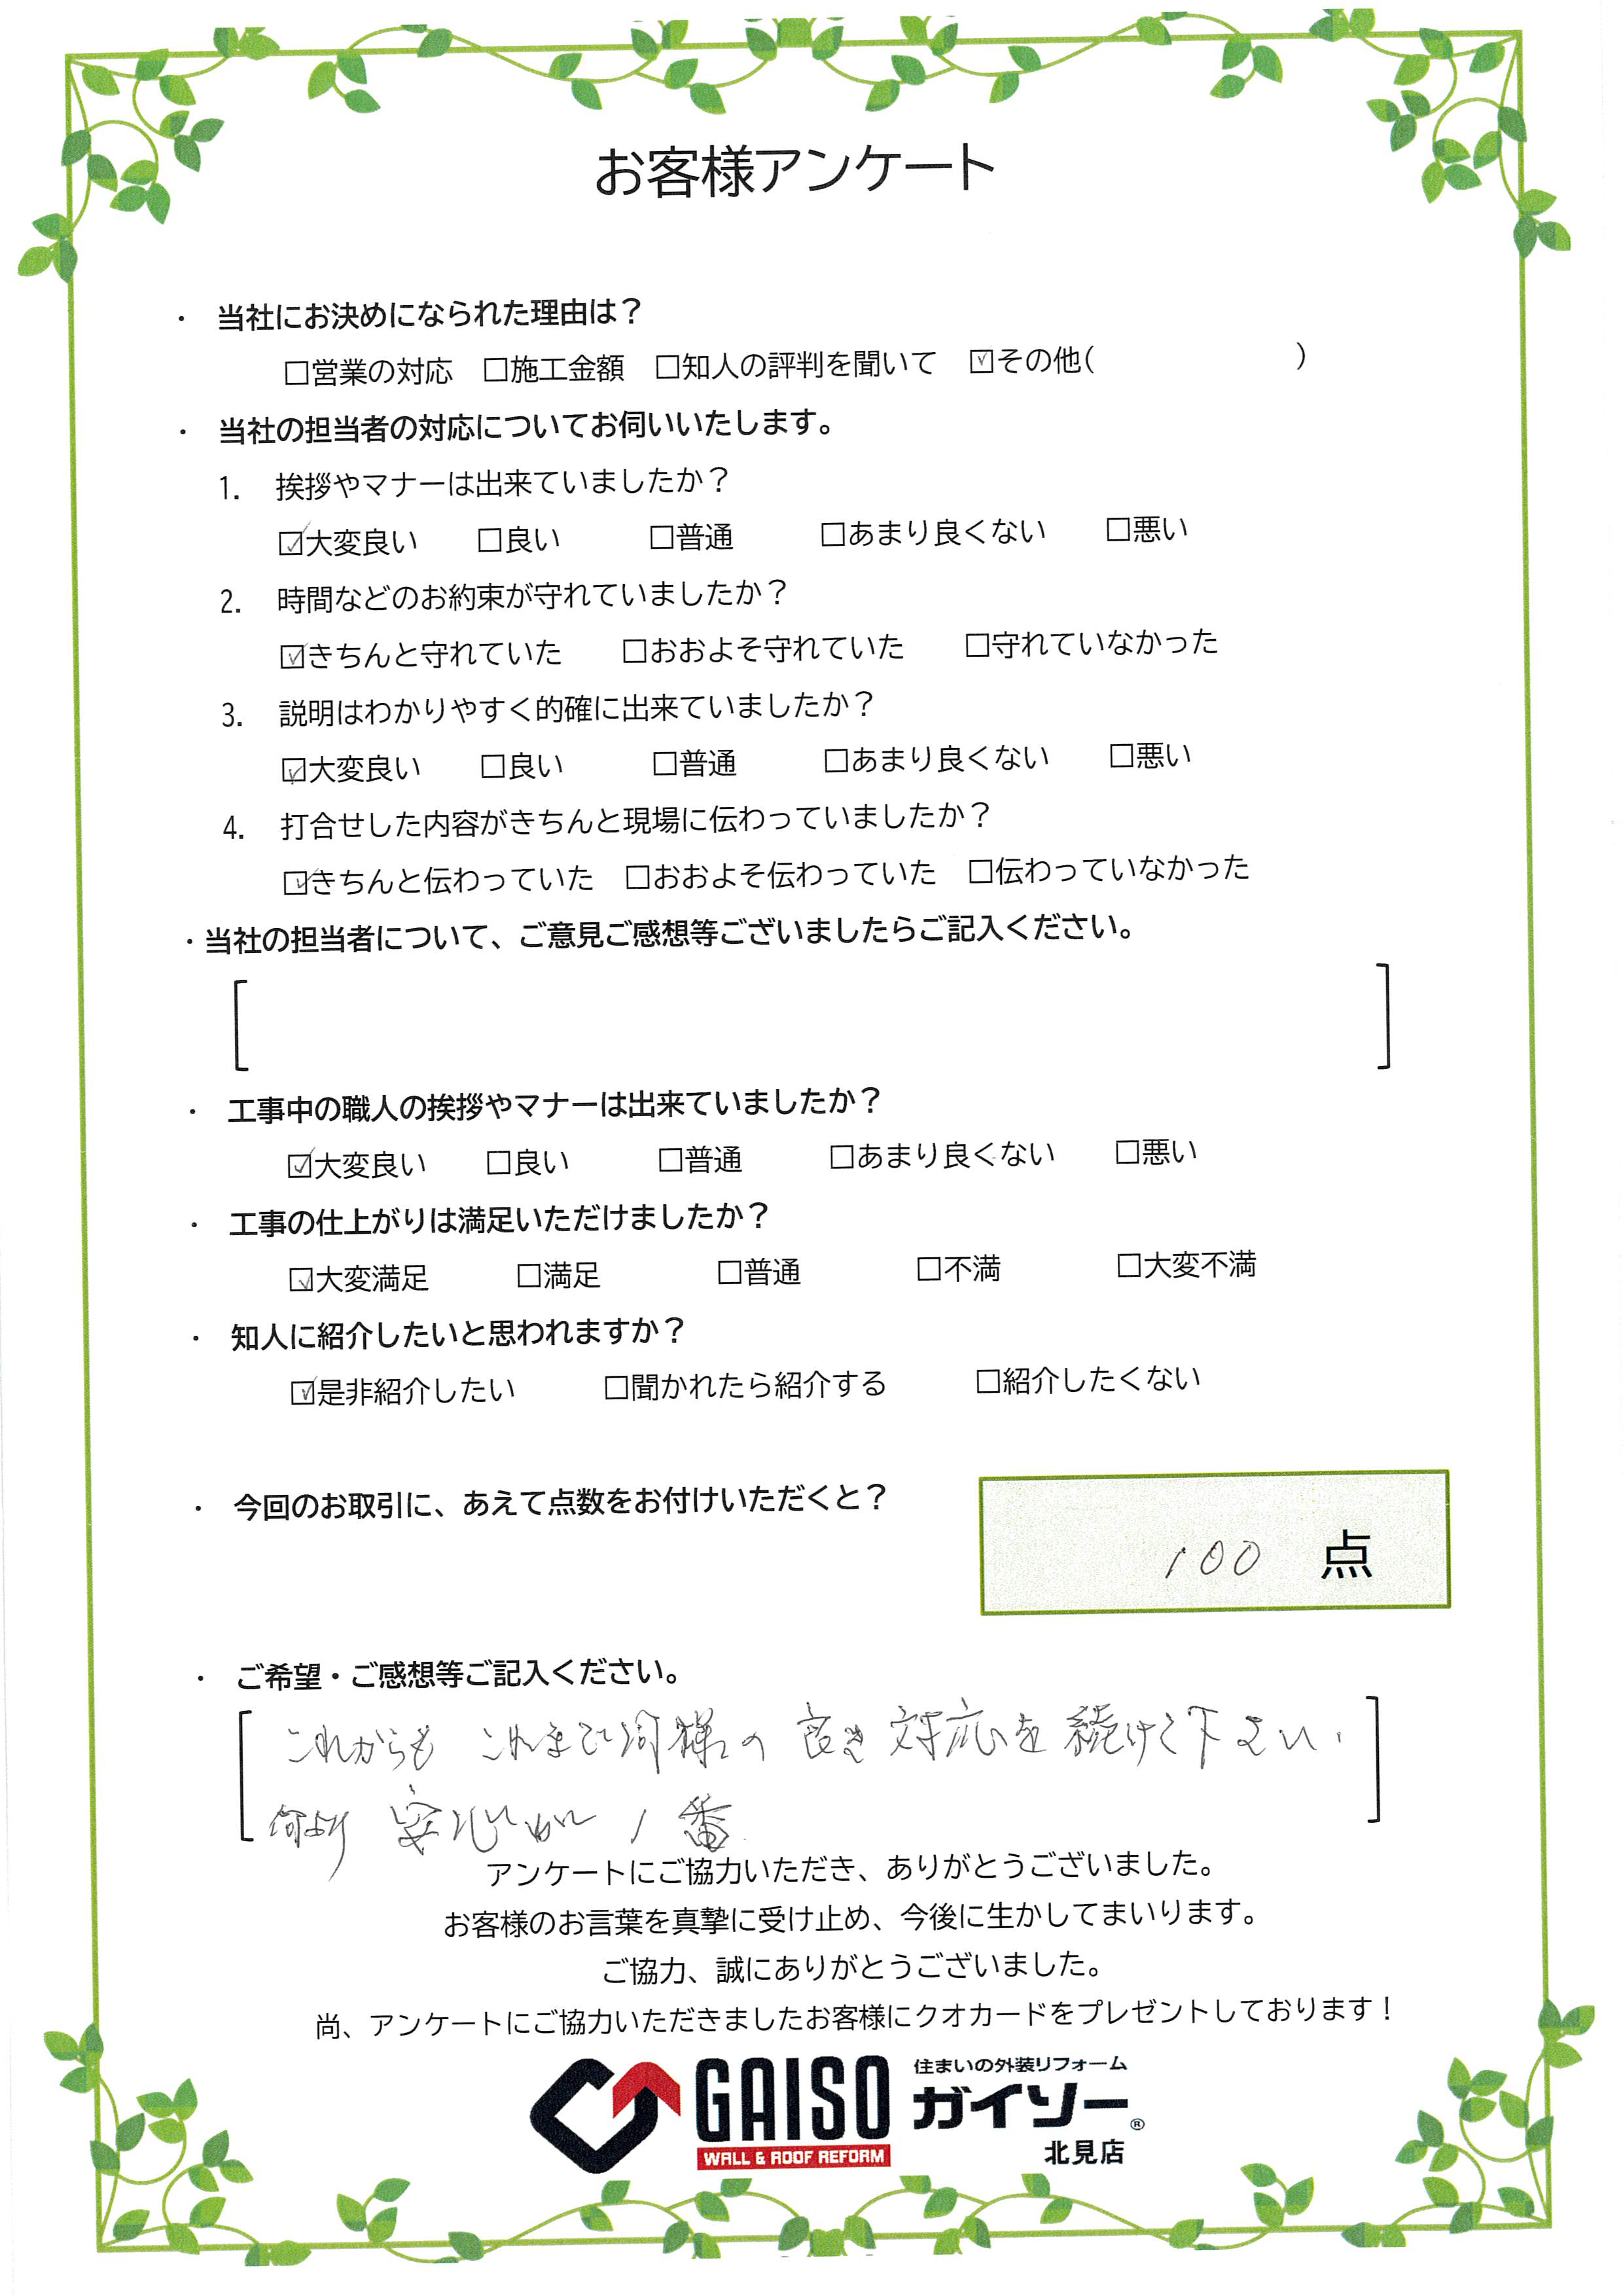 お客様アンケート
・ 当社にお決めになられた理由は？
□営業の対応 □施工金額 □知人の評判を聞いて ☑その他( )
・ 当社の担当者の対応についてお伺いいたします。
1. 挨拶やマナーは出来ていましたか？
☑大変良い □良い □普通 □あまり良くない □悪い
2. 時間などのお約束が守れていましたか？
☑きちんと守れていた □おおよそ守れていた □守れていなかった
3. 説明はわかりやすく的確に出来ていましたか？
☑大変良い □良い □普通 □あまり良くない □悪い
4. 打合せした内容がきちんと現場に伝わっていましたか？
☑きちんと伝わっていた □おおよそ伝わっていた □伝わっていなかった
・当社の担当者について、ご意見ご感想等ございましたらご記入ください。
・ 工事中の職人の挨拶やマナーは出来ていましたか？
☑大変良い □良い □普通 □あまり良くない □悪い
・ 工事の仕上がりは満足いただけましたか？
☑大変満足 □満足 □普通 □不満 □大変不満
・ 知人に紹介したいと思われますか？
☑是非紹介したい □聞かれたら紹介する □紹介したくない
・ 今回のお取引に、あえて点数をお付けいただくと？
100 点
・ ご希望・ご感想等ご記入ください。
これからも これまで同様の 良き 対応を 続けて下さい.
何より 安心が 1番
アンケートにご協力いただき、ありがとうございました。
お客様のお言葉を真摯に受け止め、今後に生かしてまいります。
ご協力、誠にありがとうございました。
尚、アンケートにご協力いただきましたお客様にクオカードをプレゼントしております！
GAISO
WALL & ROOF REFORM
住まいの外装リフォーム
ガイソー®
北見店